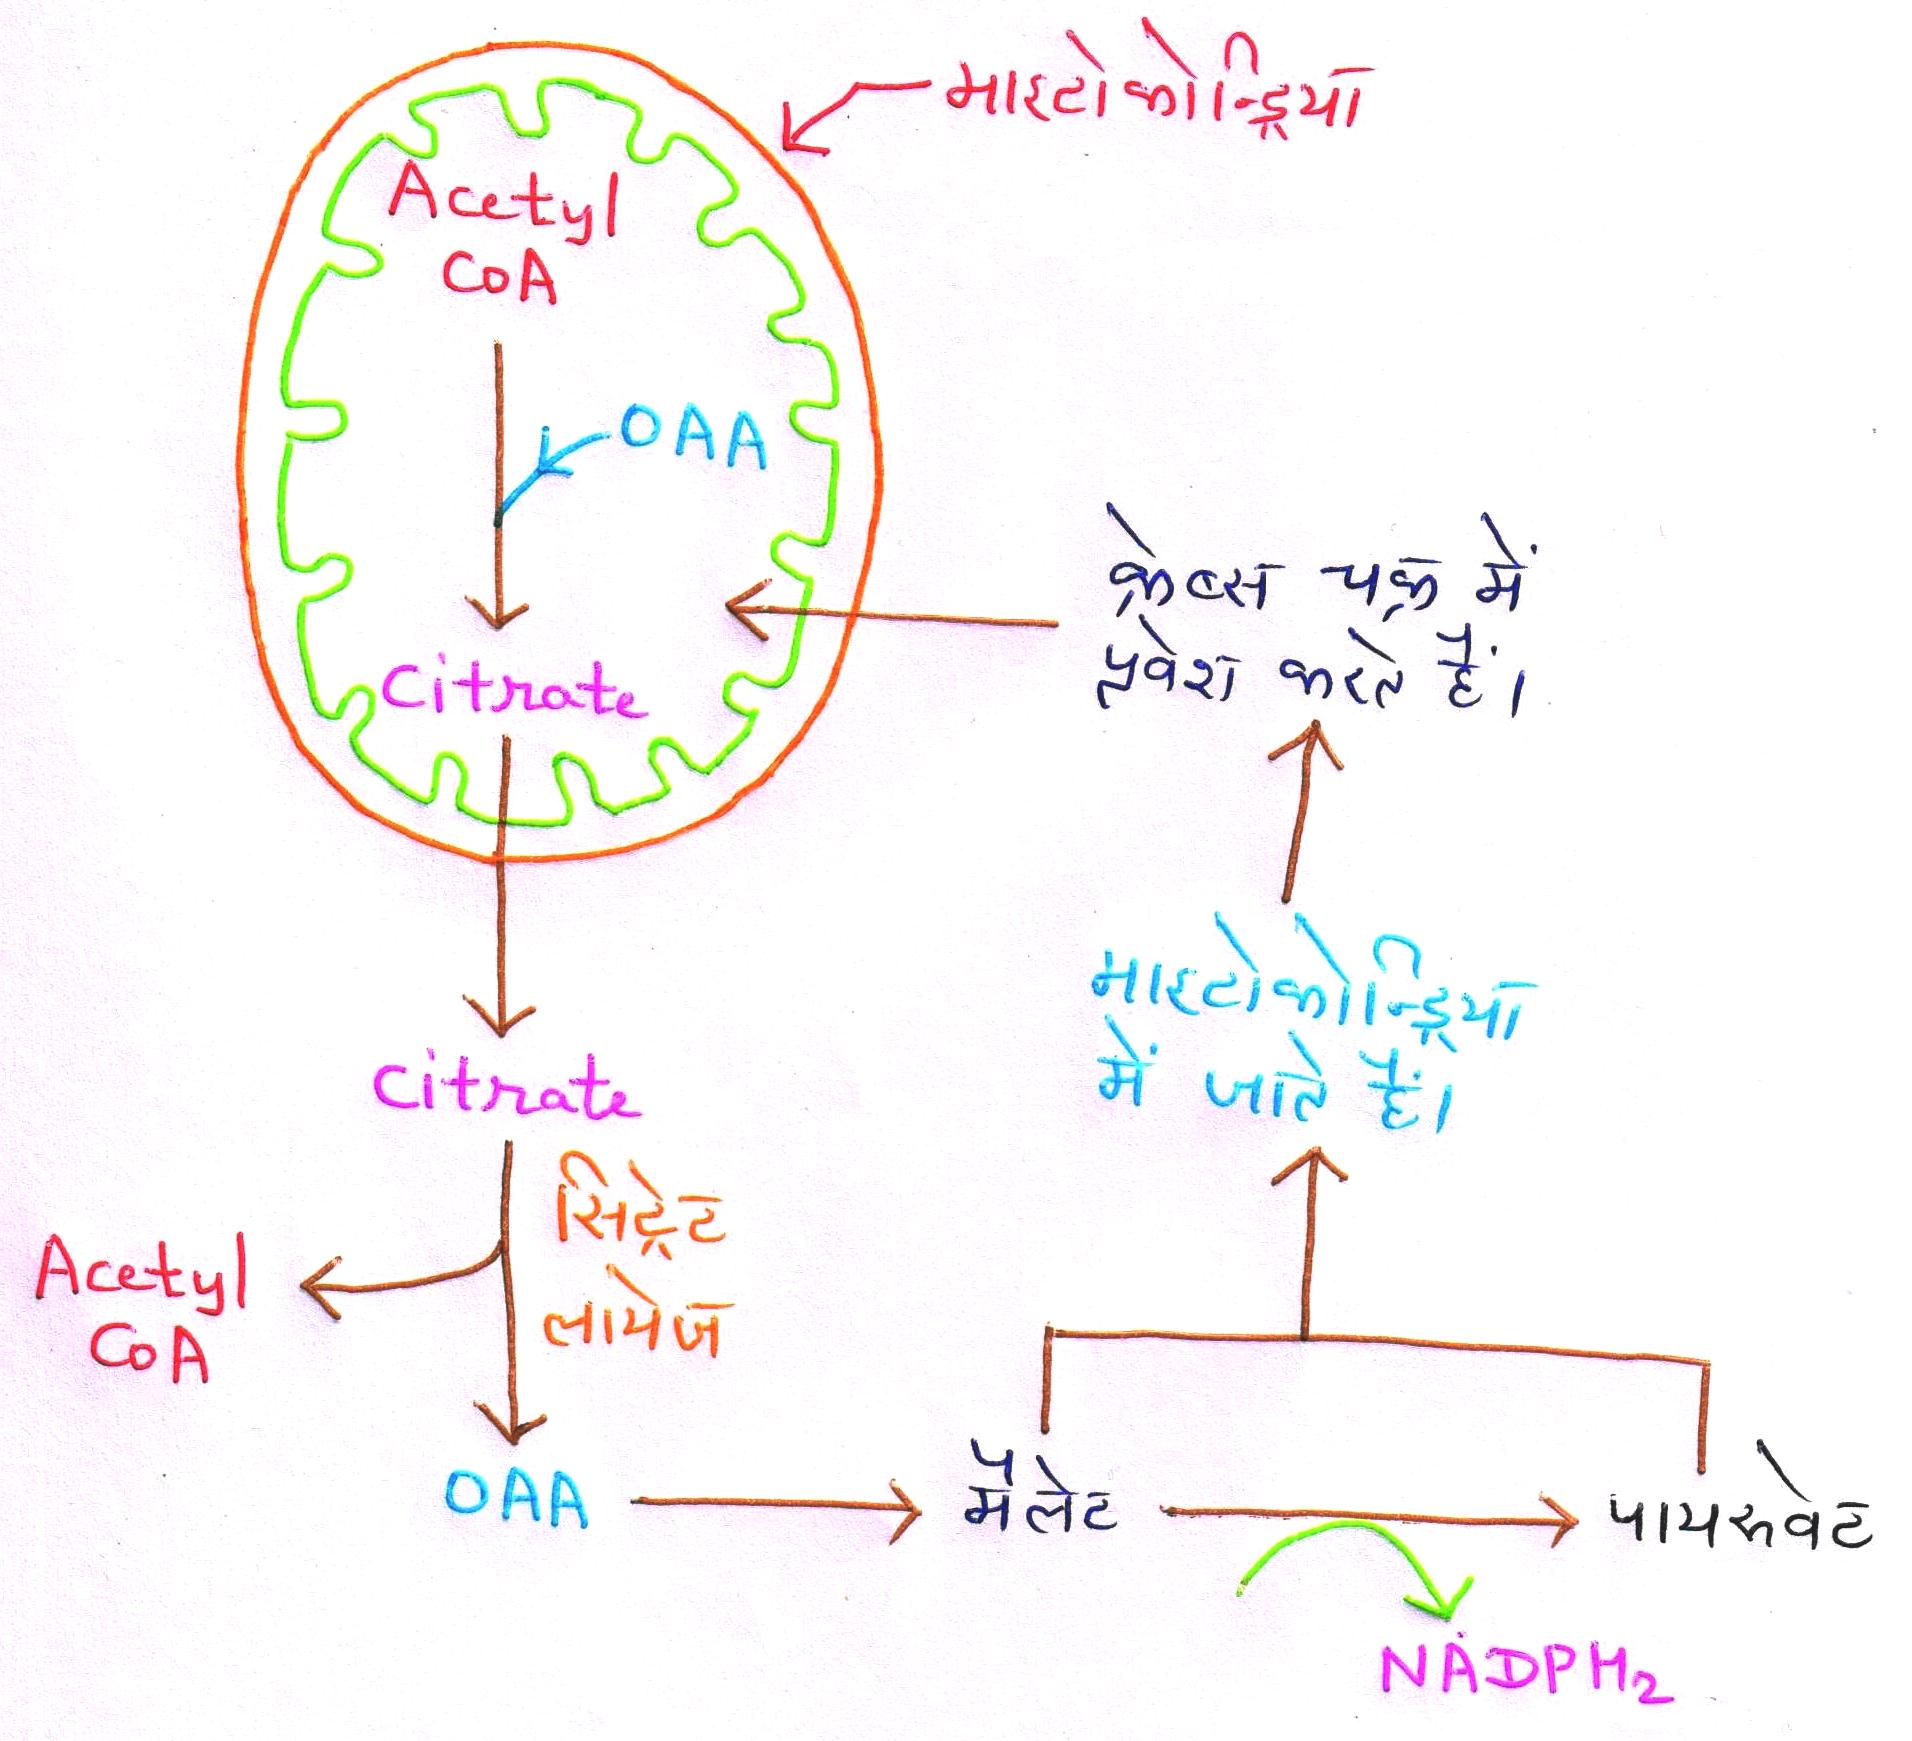 माइटोकोन्ड्रिया
Acetyl
CoA
OAA
Citrate
क्रेब्स चक्र में
प्रवेश करते हैं।
माइटोकोन्ड्रिया
में जाते हैं।
Citrate
सिट्रेट
लायेज
Acetyl
CoA
OAA
मैलेट
पायरुवेट
NADPH₂